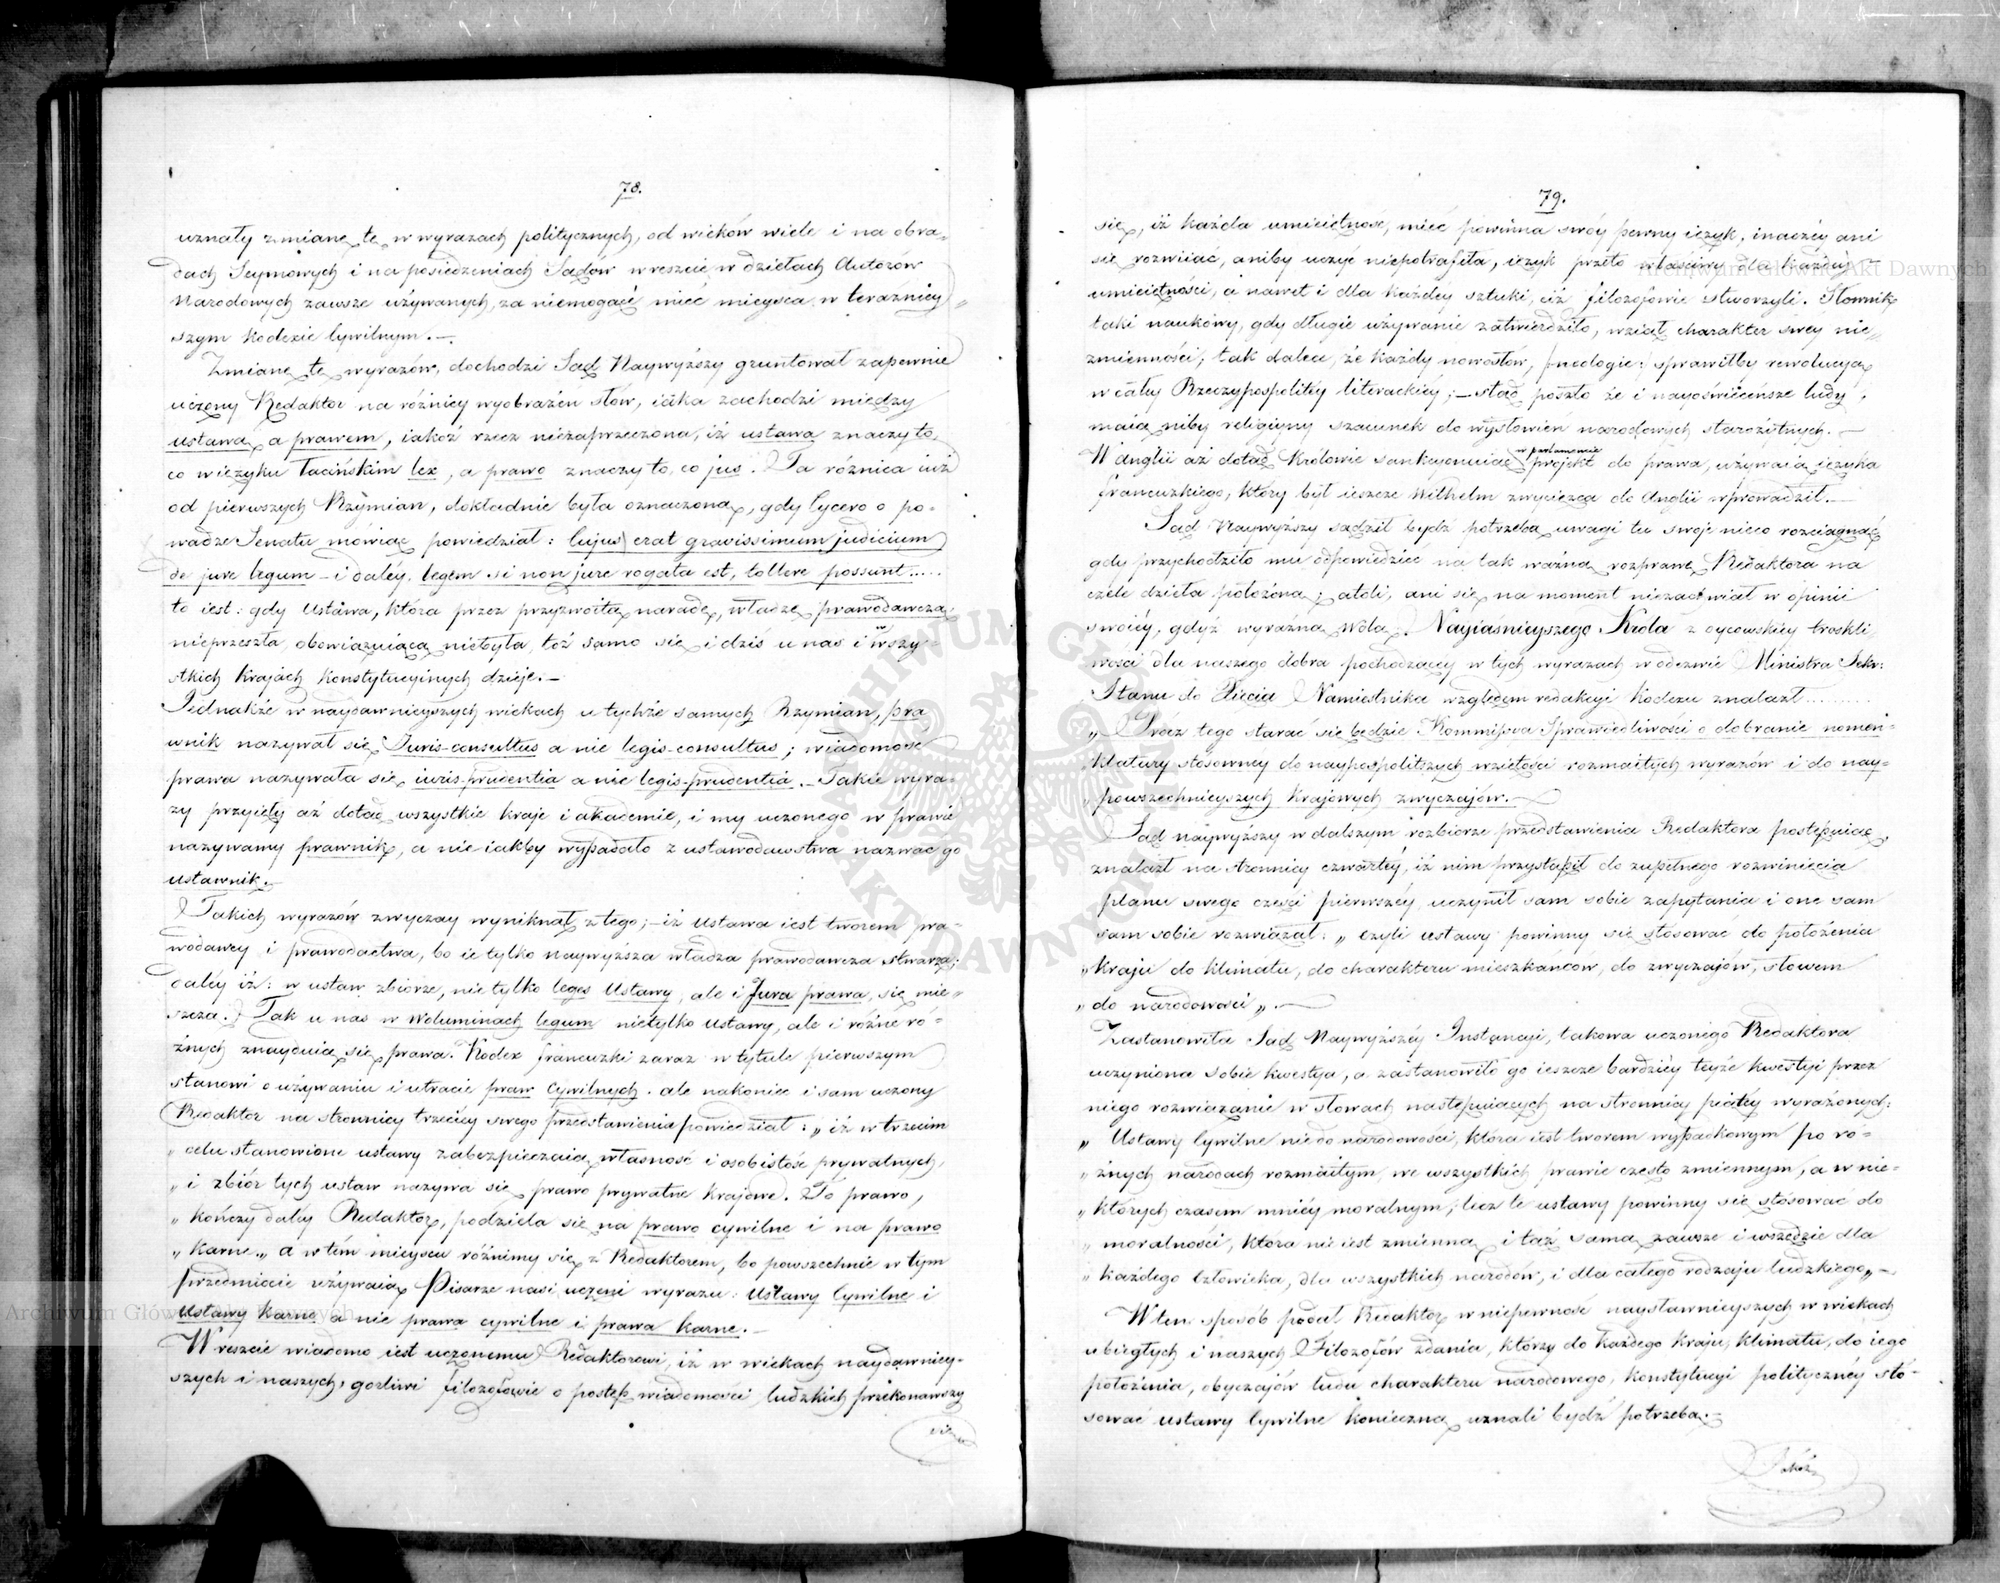 78.
uznały zmianę tę w wyrazach politycznych, od wieków wiele i na obra-
dach Seymowych i na posiedzeniach Sądów wreszcie w dziełach Autorów
Narodowych zawsze używanych, za niemogącé mieć mieysca w teraznicy-
szym kodexie Cywilnym.—
Zmianę tę wyrazów, dochodzi Sąd Naywyższy gruntował zapewnie
uczony Redaktor na różnicy wyobrażeń słów, iaka zachodzi między
ustawą a prawem, iakoż rzecz niezaprzeczona, iż ustawa znaczy to
co w ięzyku Łacińskim lex, a prawo znaczy to, co jus. Ta różnica iuż
od pierwszych Rzymian, dokładnie była oznaczoną, gdy Cycero o po-
wadze Senatu mówiąc powiedział: Cujus erat gravissimum judicium
de jure legum – i daléy. legem si non jure rogata est, tollere possunt.....
to iest: gdy Ustawa, która przez przyzwoitą naradę, władzę prawodawczą
nieprzeszła, obowiązuiącą niebyła, toż samo się i dziś u nas i w wszy-
stkich krajach konstytucyinych dzieje.—
Jednakże w naydawnieyszych wiekach u tychże samych Rzymian, pra
wnik nazywał się Juris-consultus a nie legis-consultus; wiadomość
prawa nazywała się iuris-prudentia a nie legis-prudentia.— Takie wyra-
zy przyięły aż dotąd wszystkie kraje i akademie, i my uczonego w prawie
nazywamy prawnik, a nie iakby wypadało z ustawodawstwa nazwać go
ustawnik.—
Takich wyrazów zwyczay wyniknął z tego;—iż ustawa iest tworem pra-
wodawcy i prawodactwa, bo ie tylko naywyższa władza prawodawcza stwarza;
daléy iż: w ustaw zbiorze, nie tylko leges Ustawy, ale i Jura prawa, się mie-
szczą. Tak u nas w Woluminach legum nietylko ustawy, ale i różne ró-
żnych znayduią się prawa. Kodex francuzki zaraz w tytule pierwszym
stanowi o używaniu i utracie praw Cywilnych. ale nakoniec i sam uczony
Redaktor na stronnicy trzeciéy swego przedstawienia powiedział: „iż w trzecim
„ celu stanowione ustawy zabezpieczaią własność i osobistość prywatnych,
„ i zbiór tych ustaw nazywa się prawo prywatne krajowe. To prawo,
„ kończy daléy Redaktor, podziela się na prawo cywilne i na prawo
„ karne.„ a w tém mieyscu różnimy się z Redaktorem, bo powszechnie w tym
przedmiocie używaią Pisarze nasi uczeni wyrazu: Ustawy Cywilne i
Ustawy karne a nie prawa cywilne i prawa karne.—
Wreszcie wiadomo iest uczonemu Redaktorowi, iż w wiekach naydawniey-
szych i naszych, gorliwi filozofowie o postęp wiadomości ludzkich przekonawszy
się
79.
się, iż każda umieiętność, mieć powinna swóy pewny ięzyk, inaczéy ani
się rozwiiać, aniby uczyć niepotrafiła, ięzyk przeto właściwy dla każdéy
umieiętności, a nawet i dla każdéy sztuki, ciż filozofowie stworzyli. Słownik
taki naukowy, gdy długie używanie zatwierdziło, wziął charakter swey nie-
zmienności; tak dalece, że każdy nowosłów, /:neologie:/ sprawiłby rewolucyą
w całéy Rzeczypospolitéy literackiéy;—stąd poszło że i nayoświeceńsze ludy,
maią niby religiyny szacunek do wysłowień narodowych starożitnych.—
W Anglii aż dotąd Królowie sankcyonuiąc w parlamencie projekt do prawa, używaią ięzyka
francuzkiego, który był ieszcze Wilhelm zwycięzca do Anglii wprowadził.—
Sąd Naywyższy sądził bydź potrzebą uwagi te swoje nieco rozciągnąć
gdy przychodziło mu odpowiedzieć na tak ważną rozprawę Redaktora na
czele dzieła położoną; atoli, ani się na moment niezachwiał w opinii
swoiéy, gdyż wyraźna Wola Nayiaśnieyszego Króla z oycowskiéy troskli
wości dla naszego dobra pochodzącéy w tych wyrazach w odezwie Ministra Sekr:
Stanu do Xięcia Namiestnika względem redakcyi kodexu znalazł.........
„ Prócz tego starać się będzie Kommissya Sprawiedliwości o dobranie nomen-
„ klatury stosowney do naypospolitszych wziętości rozmaitych wyrazów i do nay-
„ powszechnieyszych krajowych zwyczajów.—
Sąd naywyższy w dalszym rozbiorze przedstawienia Redaktora postępuiąc,
znalazł na stronnicy czwartéy, iż nim przystąpił do zupełnego rozwinięcia
planu swego części pierwszéy uczynił sam sobie zapytania i one sam
sam sobie rozwiązał: „ czyli ustawy powinny się stósować do położenia
„ kraju do klimatu, do charakteru mieszkańców, do zwyczajów, słowem
„ do narodowości „.—
Zastanowiła Sąd Naywyższéy Instancyi, takowa uczonego Redaktora
uczyniona sobie kwestya, a zastanowiło go ieszcze bardziéy teyże kwestyi przez
niego rozwiązanie w słowach następuiących na stronnicy piątéy wyrażonych:
„ Ustawy Cywilne nie do narodowości, która iest tworem wypadkowym po ró-
„ żnych narodach rozmaitym, we wszystkich prawie często zmiennym, a w nie-
„ których czasem mniéy moralnym; lecz te ustawy powinny się stósować do
„ moralności, która nie iest zmienna i taż sama zawsze i wszędzie dla
„ każdego Człowieka, dla wszystkich narodów, i dla całego rodzaju ludzkiego„—
W ten sposób podał Redaktor w niepewność naysławnieyszych w wiekach
ubiegłych i naszych Filozofów zdania, którzy do każdego kraju, klimatu, do iego
położenia, obyczajów ludu charakteru narodowego, konstytucyi politycznéy stó-
sować ustawy Cywilne konieczną uznali bydź potrzebą.—
Jakoż